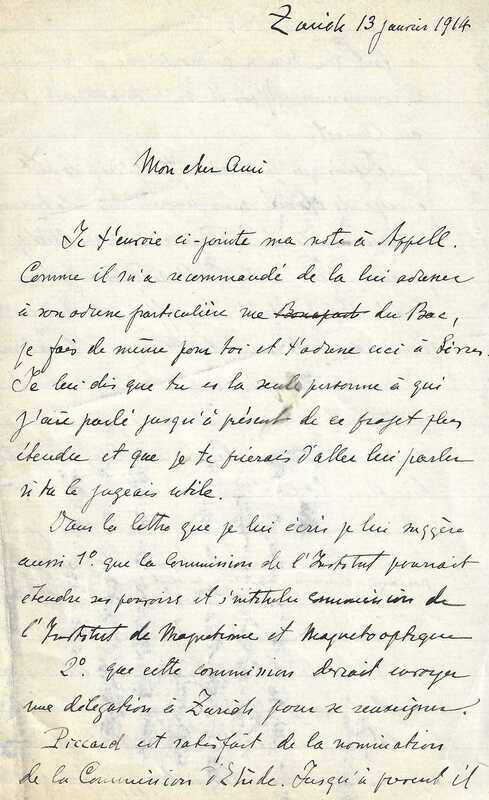 Zurich 13 janvier 1914
Mon cher Ami
Je t'envoie ci-jointe ma note à Appell.
Comme il m'a recommandé de la lui adresser
à son adresse particulière rue Bonapart du Bac,
je fais de même pour toi et t'adresse ceci à Sèvres.
Je lui dis que tu es la seule personne à qui
j'aie parlé jusqu'à présent de ce projet plus
étendu et que je te prierais d'aller lui parler
si tu le jugeais utile.
Dans la lettre que je lui écris je lui suggère
aussi 1º. que la Commission de l'Institut pourrait
étendre ses pouvoirs et s'intituler commission de
l'Institut de Magnétisme et Magnetooptique
2º. que cette commission devrait envoyer
une délégation à Zurich pour se renseigner.
Piccard est satisfait de la nomination
de la Commission d'Etude. Jusqu'à présent il